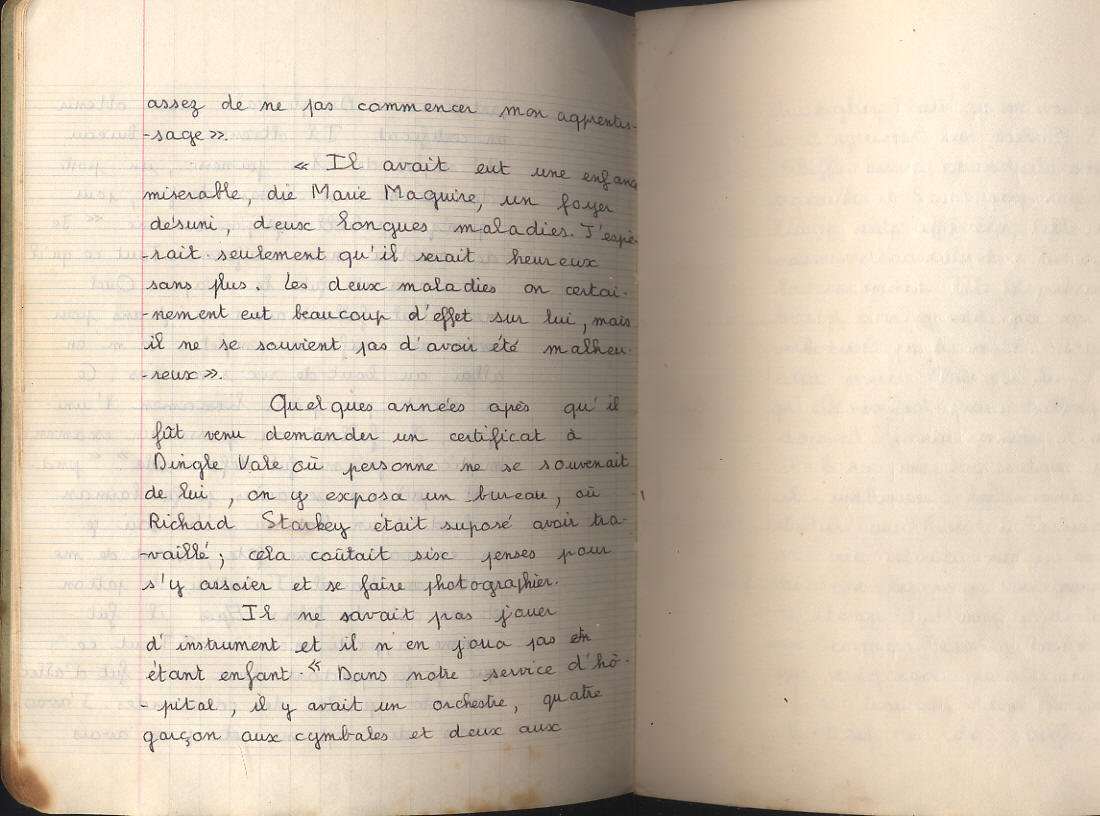 assez de ne pas commencer mon apprentis-
-sage ».
« Il avait eut une enfance
miserable, dié Marie Maguire, un foyer
désuni, deux longues maladies. J'espé-
-rait seulement qu'il serait heureux
sans plus. Les deux maladies on certai-
-nement eut beaucoup d'effet sur lui, mais
il ne se souvient pas d'avoir été malheu-
-reux ».
Quelques années apès qu'il
fût venu demander un certificat à
Dingle Vale où personne ne se souvenait
de lui, on y exposa un bureau, où
Richard Starkey était suposé avoir tra-
-vaillé ; cela coûtait sisc penses pour
s'y assoier et se faire photographier.
Il ne savait pas jouer
d'instrument et il n'en joua pas en
étant enfant. « Dans notre service d'hô-
-pital, il y avait un orchestre, quatre
garçon aux cymbales et deux aux